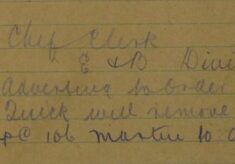 Chef Clerk
E & B Divi
Adversing to Order
Quick will remove
PC 106 Martin to C